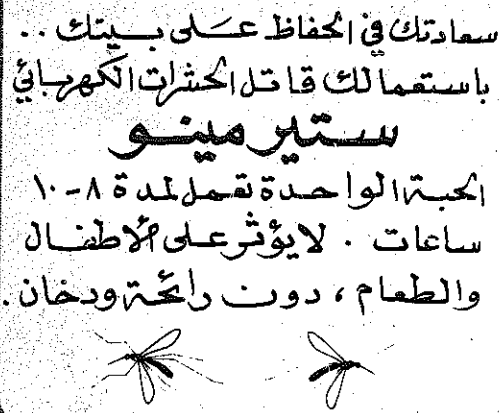 سعادتك في الحفاظ على بيتك ..
باستعمالك قاتل الحشرات الكهربائي
ستيرمينو
الحبة الواحدة تعمل لمدة ٨-١٠
ساعات . لا يؤثر على الاطفال
والطعام ، دون رائحة ودخان .